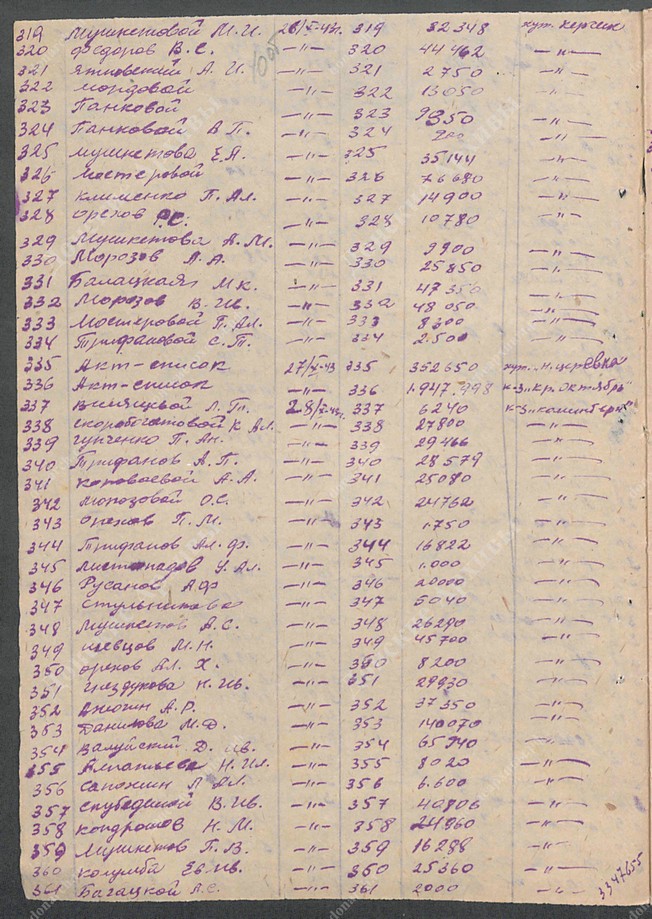 319 Мушкетовой М.И. 26/X-43г. 319 32348 хут. Керчик
320 Федоров В.С. —"— 320 44462 —"—
321 А.И. —"— 321 2750 —"—
322 Мордовой —"— 322 13050 —"—
323 Панковой —"— 323 9350 —"—
324 Панковой А.П. —"— 324 900 —"—
325 Мушкетова Е.Я. —"— 325 35144 —"—
326 Мостеровой —"— 326 76680 —"—
327 Клименко П. Ал. —"— 327 14900 —"—
328 Орехов Р.С. —"— 328 10780 —"—
329 Мушкетова А.М. —"— 329 9900 —"—
330 Морозов А.А. —"— 330 25850 —"—
331 Балацкая М.К. —"— 331 47350 —"—
332 Морозов В.Ив. —"— 332 48050 —"—
333 Мостеровой П. Ал. —"— 333 8300 —"—
334 Трифановой С.П. —"— 334 2500 —"—
335 Акт-список 27/X-43 335 352650 хут.
336 Акт-список —"— 336 1.947.998 к-з „Кр. Октябрь"
337 Л. Гр. 28/X-43г. 337 6240 к-з „Коминтерн"
338 Скоробогатовой К Ал —"— 338 27800 —"—
339 Гунченко П. Ан. —"— 339 29466 —"—
340 Трифанов А.П. —"— 340 28579 —"—
341 Коноваевой А.А. —"— 341 25080 —"—
342 Морозовой О.С. —"— 342 24762 —"—
343 Орехов П.М. —"— 343 1.750 —"—
344 Трифанов Ал. Ф. —"— 344 16822 —"—
345 Листопадов У. Ал. —"— 345 1.000 —"—
346 Русанов А Ф —"— 346 20000 —"—
347 Стульникова —"— 347 5040 —"—
348 Мушкетов А.С. —"— 348 26290 —"—
349 Шевцов М.Н. —"— 349 45700 —"—
350 Орехов Ал. Х. —"— 350 8200 —"—
351 Гнездукова Н.Ив. —"— 351 29930 —"—
352 Дюжин А.Р. —"— 352 37350 —"—
353 Данилова М.Д. —"— 353 140070 —"—
354 Валуйский Д. Ив. —"— 354 65940 —"—
355 Н. Ил. —"— 355 8020 —"—
356 Сапожин Л Ал. —"— 356 6.600 —"—
357 В.Ив. —"— 357 40806 —"—
358 Кондрашов Н.М. —"— 358 24960 —"—
359 Мушкетов П.В. —"— 359 16288 —"—
360 Колумба Ев.Ив. —"— 360 25360 —"—
361 Багацкой Л.С. —"— 361 2000 —"—
3347655